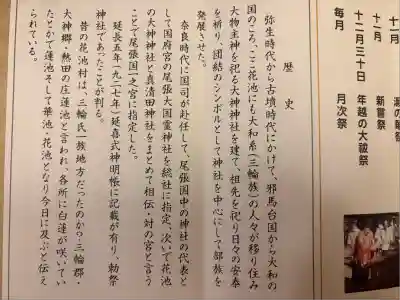 歴史
弥生時代から古墳時代にかけて、邪馬台国から大和の
国のころ、ここ花池にも大和系(三輪族)の人々が移り住み
大物主神を祀る大神神社を建て祖先を祀り日々の安泰
を祈り、団結のシンボルとして神社を中心にして部族を
発展させた。
奈良時代に国司が赴任して、尾張国中の神社の代表と
して国府宮の尾張大国霊神社を総社に指定、次いで花池
の大神神社と真清田神社をまとめて相伝・対の宮と言う
ことで尾張国一之宮に指定した。
延長五年(九二七年)延喜式神明帳に記載が有り、勅祭
神社であったことが判る。
昔の花池村は、三輪氏一族地方だったのか?三輪郡・
大神郷・熱田の庄蓮池と言われ、各所に白蓮が咲いてい
たとかで蓮池そして華池・花池となり今日に及ぶと伝え
られている。
十二月 新嘗祭
十二月三十日 年越の大祓祭
毎月 月次祭